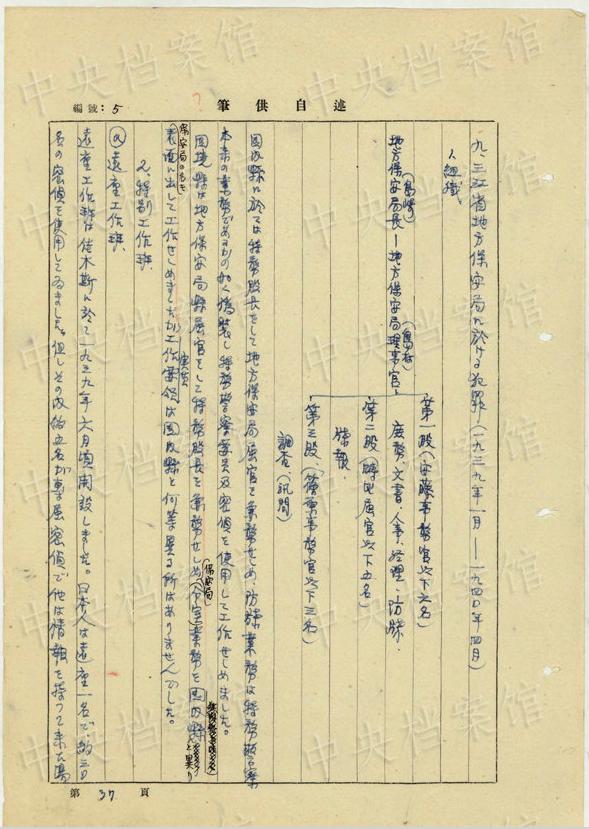 述自供筆
編號：5
九、三江省地方保安局に於ける犯罪（一九三九年一月——一九四〇年四月）
1、組織
（島崎）
地方保安局長—地方保安局理事官
第一股（安藤事務官以下六名）
庶務文書・人事、経理・防諜・
第二股（屬官以下五名）
諜報、
第三股（事務官以下三名）
調査（訊問）
国内縣に於ては特務股長をして地方保安局屬官を兼務せしめ、防諜業務は特務警察
本来の業務であるかの如く偽装し特務警察官及密偵を使用して工作せしめました。
国境縣は地方保安局縣屬官をして特務股長を兼務せしめ（保安局）業務を国内縣と異り
保安局の名を
表面に出して工作せしめましたが工作要領は国内縣と何等異る所はありませんでした。
2、特別工作班、
(a)遠産工作班、
遠産工作班は佳木斯に於て一九三九年六月頃開設しました。日本人は遠産一名で、約三〇
名の密偵を使用してゐました。但しその内約五名が専属密偵で他は情報を持つて来た場
第 37 頁
中央档案馆